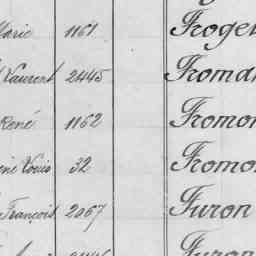 Marie 1161 Froge
Laurent 2445 Froma
René 1162 Fromon
ené Louis 32 Fromo
François 2067 Furon
Furon